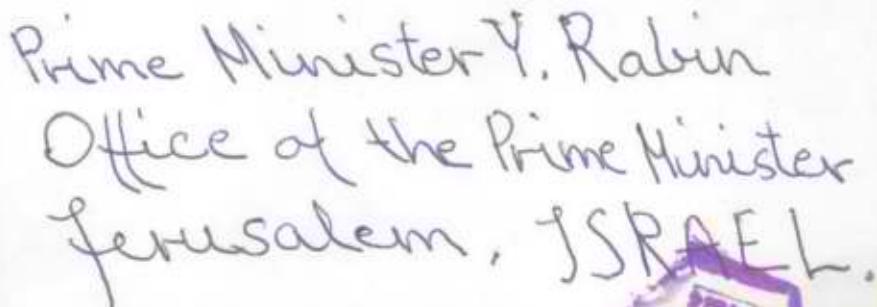 Prime Minister Y. Rabin
Office of the Prime Minister
Jerusalem, ISRAEL.